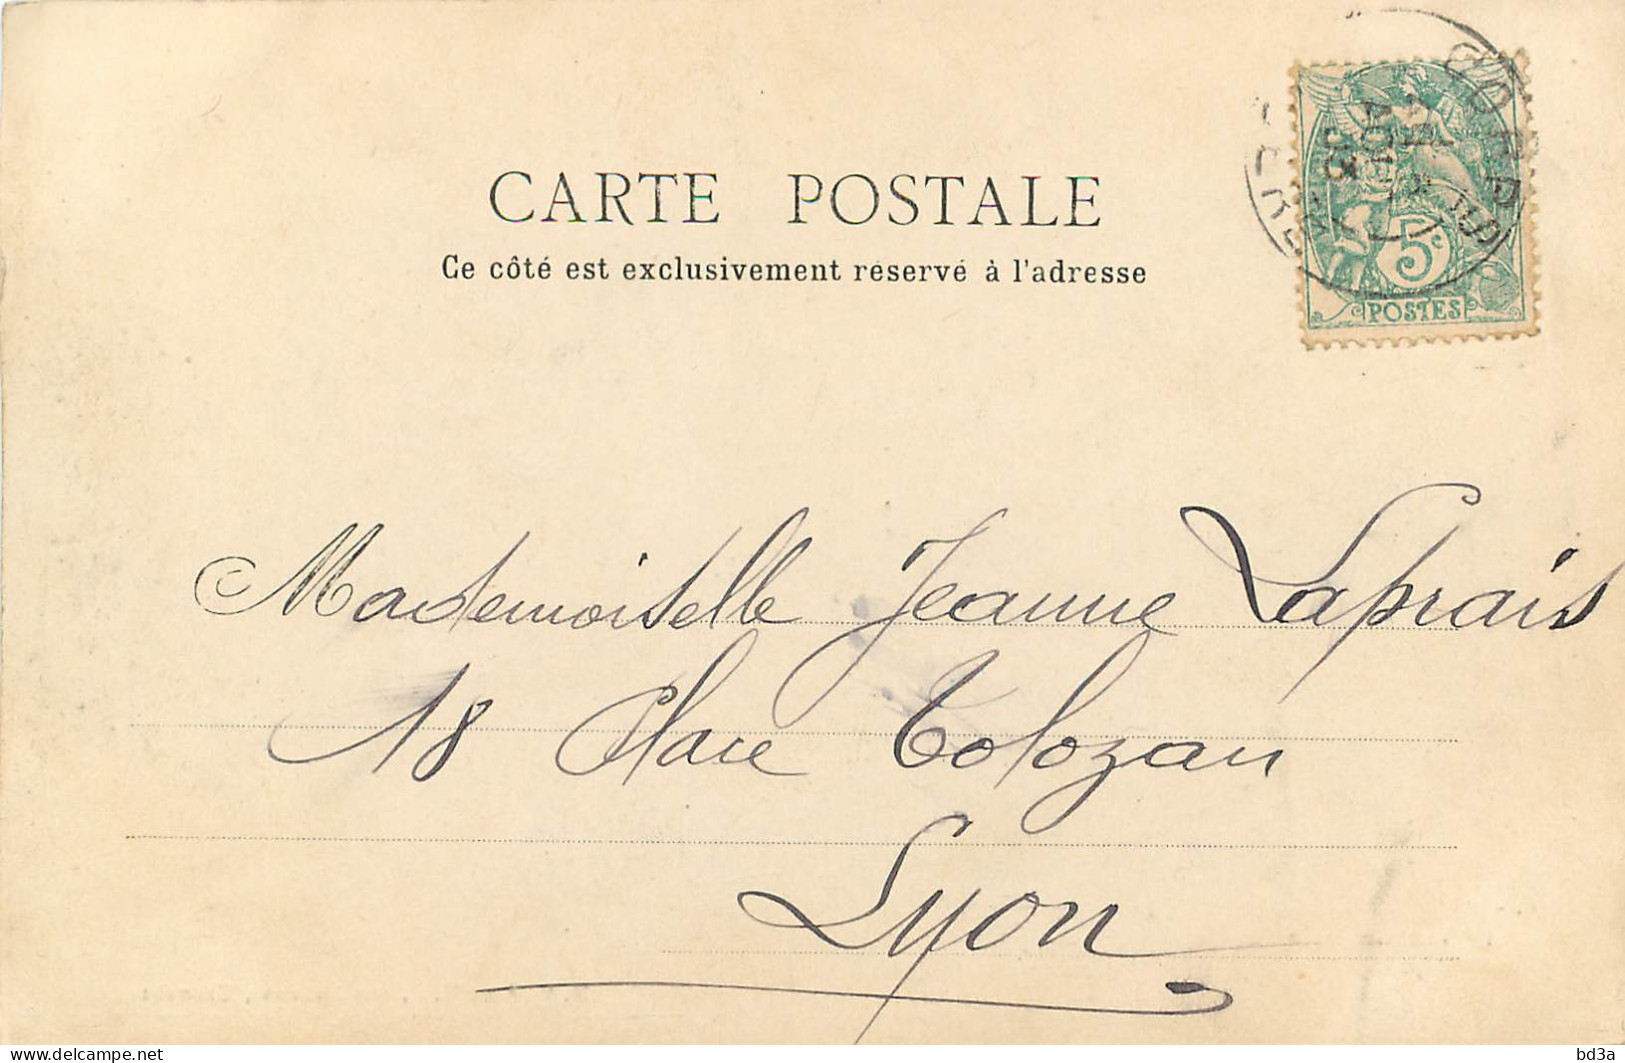 CARTE POSTALE
Ce côté est exclusivement réservé à l'adresse
5c
POSTES
Mademoiselle Jeanne Laprais
18 Place Tolozan
Lyon
delcampe.net
bd3a